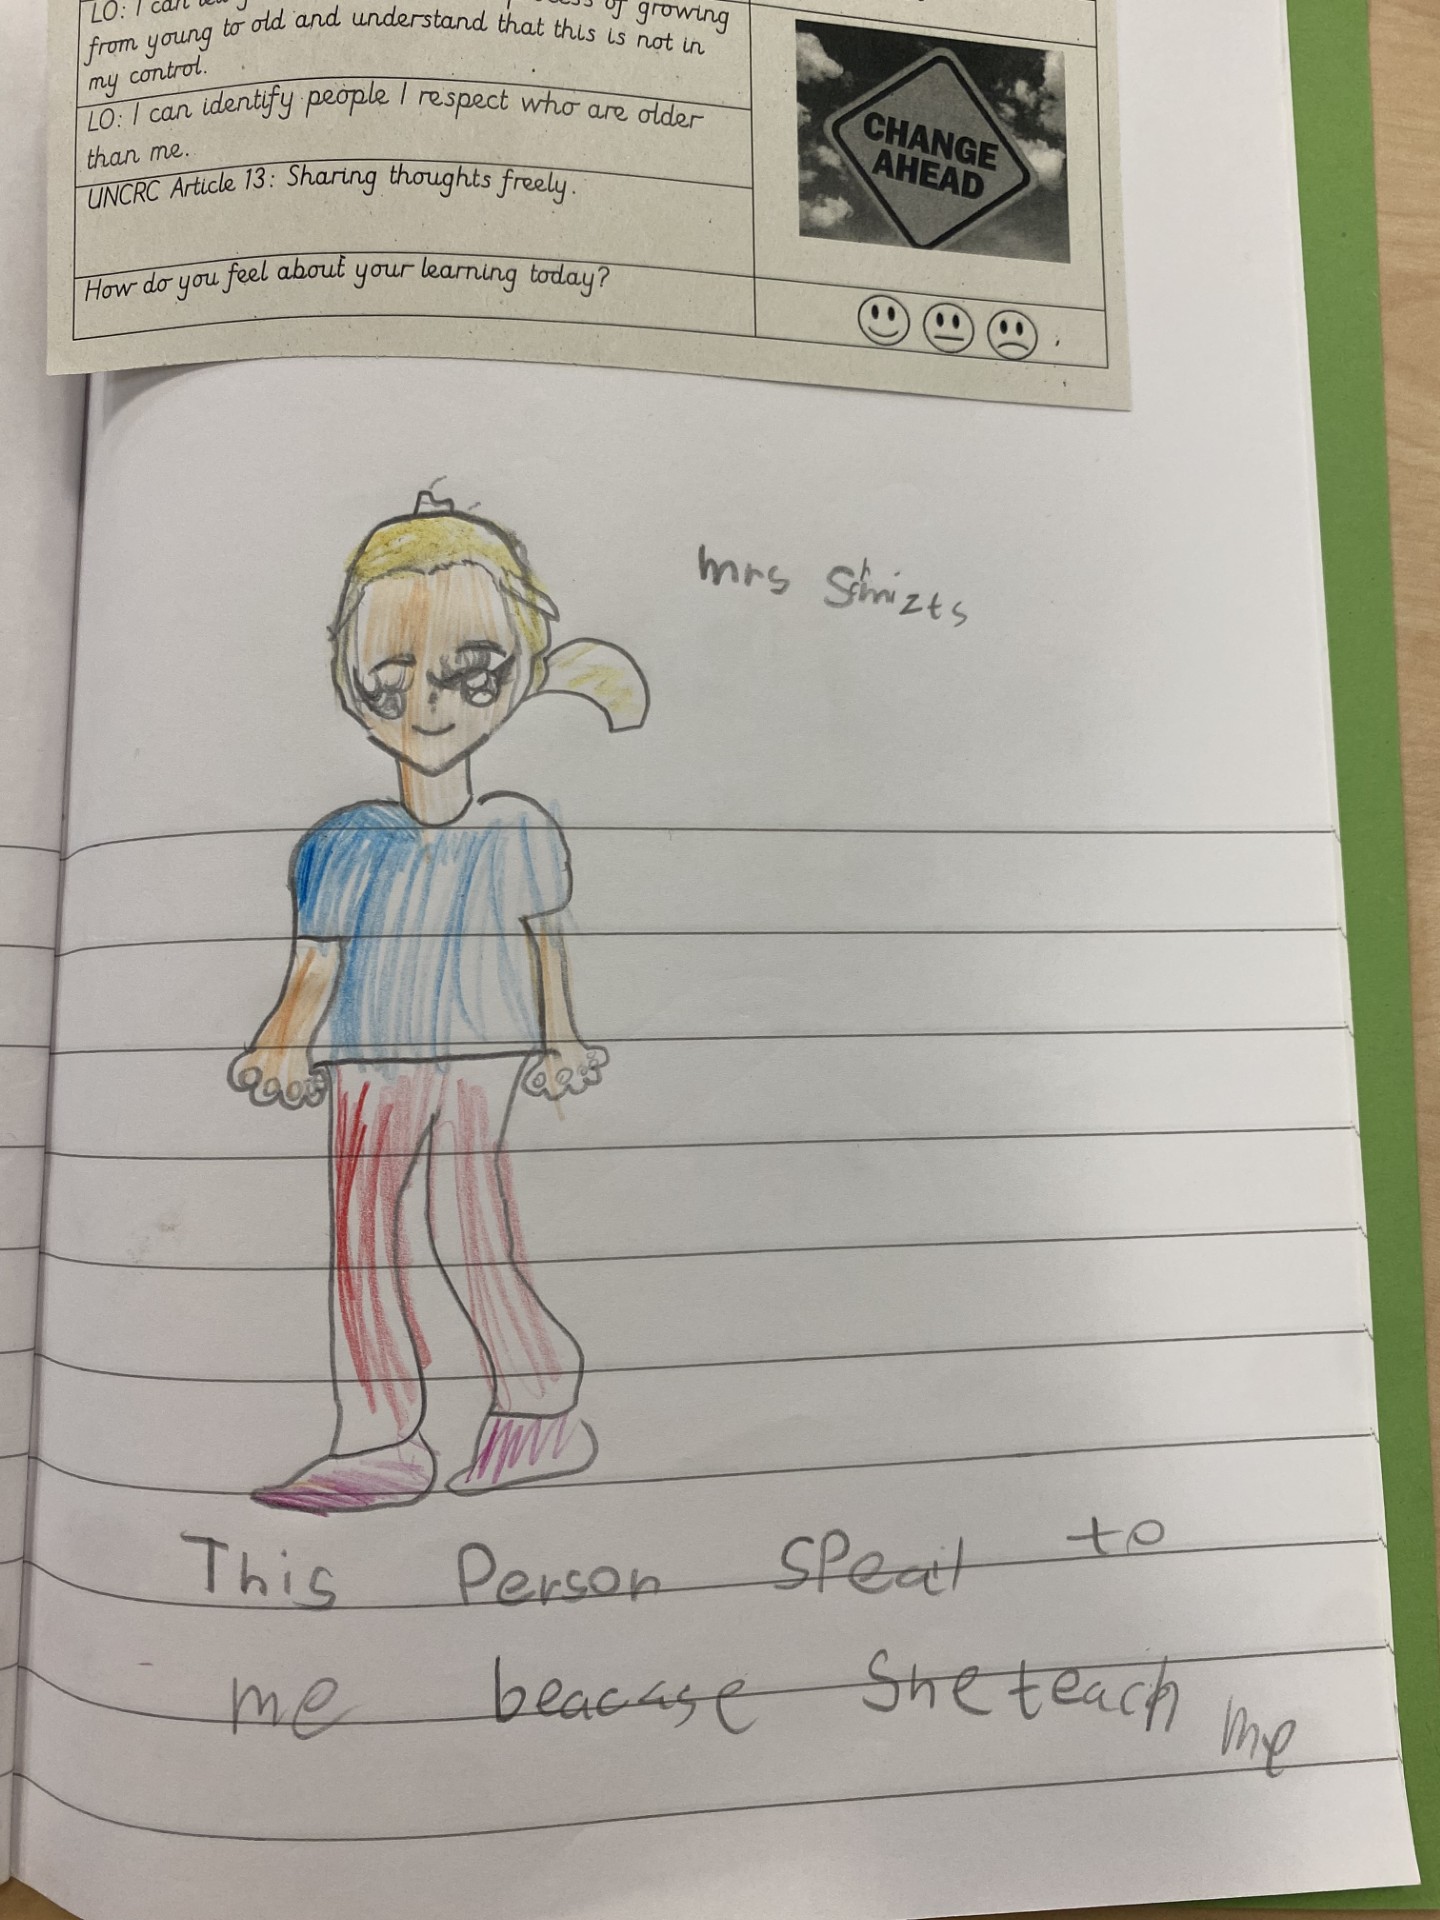 LO: I can
of growing
from young to old and understand that this is not in
my control.
LO: I can identify people I respect who are older
than me.
UNCRC Article 13: Sharing thoughts freely.
How do you feel about your learning today?
CHANGE
AHEAD
mrs Schmizts
This Person SPeail to
me beacase She teach me